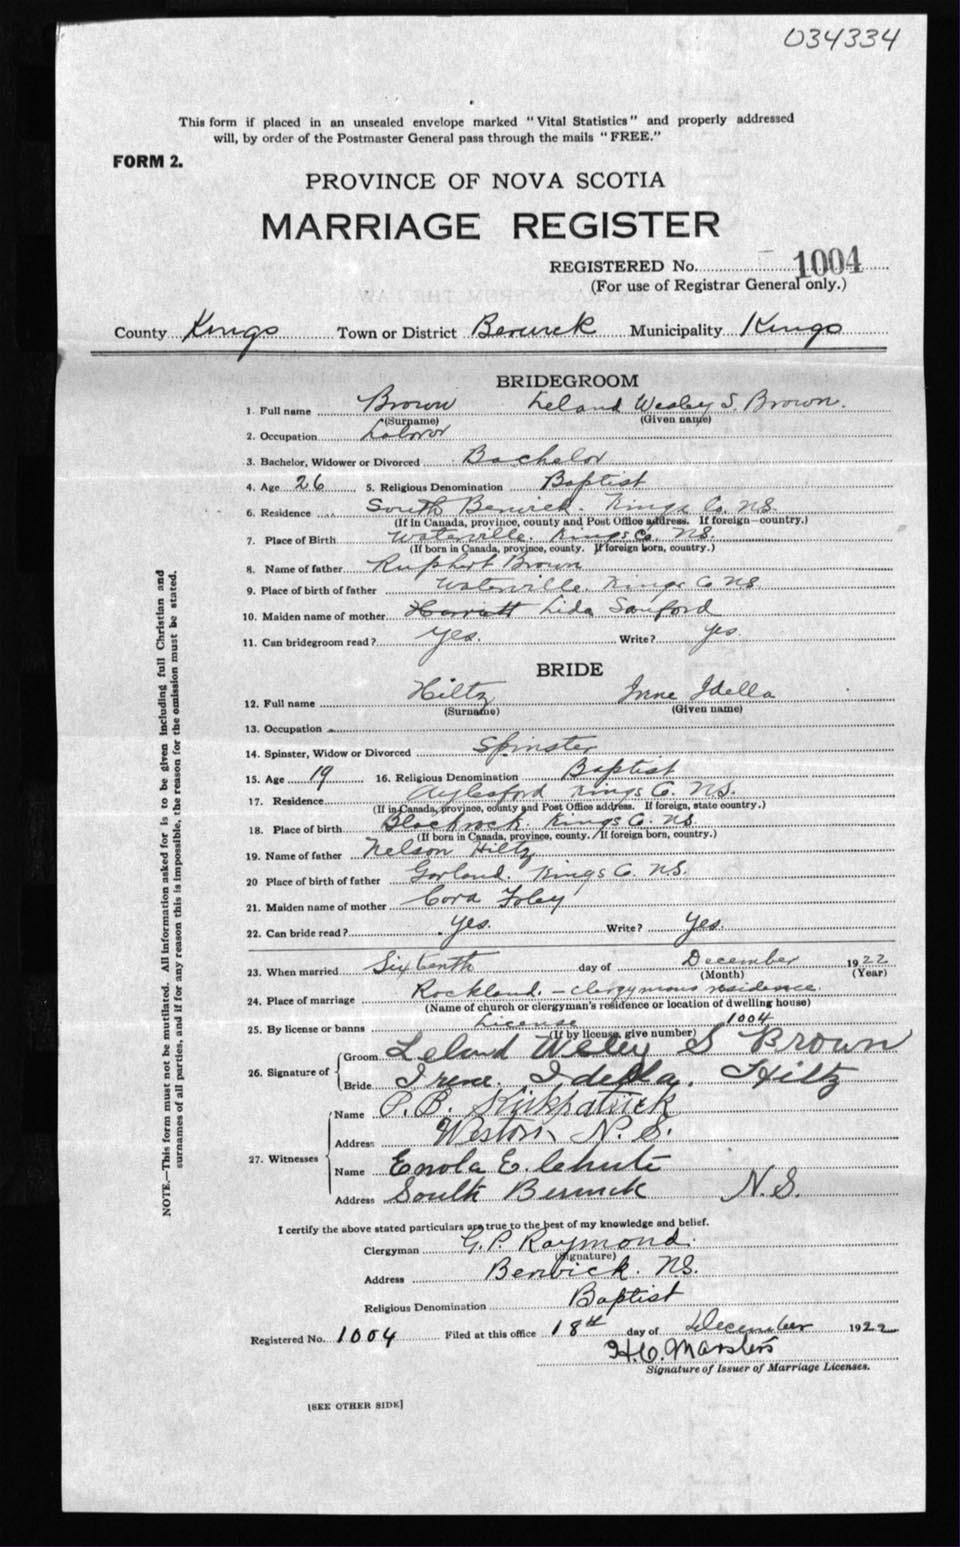 034334
This form if placed in an unsealed envelope marked "Vital Statistics" and properly addressed
will, by order of the Postmaster General pass through the mails "FREE."
FORM 2.
PROVINCE OF NOVA SCOTIA
MARRIAGE REGISTER
REGISTERED No. 1004
(For use of Registrar General only.)
County Kings Town or District Berwick Municipality Kings
BRIDEGROOM
1. Full name Brown Leland Wesley S. Brown.
(Surname) (Given name)
2. Occupation Labror
3. Bachelor, Widower or Divorced Bachelor
4. Age 26 5. Religious Denomination Baptist
6. Residence South Berwick. Kings Co. NS.
(If in Canada, province, county and Post Office address. If foreign—country.)
7. Place of Birth Waterville. Kings Co. NS.
(If born in Canada, province, county. If foreign born, country.)
8. Name of father Brown
9. Place of birth of father Waterville. Kings Co NS.
10. Maiden name of mother Harriett Lida Sanford
11. Can bridegroom read? Yes. Write? Yes.
BRIDE
12. Full name Hiltz Irene Idella
(Surname) (Given name)
13. Occupation
14. Spinster, Widow or Divorced Spinster
15. Age 19 16. Religious Denomination Baptist
17. Residence Aylesford Kings Co. NS.
(If in Canada, province, county and Post Office address. If foreign, state country.)
18. Place of birth Blackrock. Kings Co. NS
(If born in Canada, province, county. If foreign born, country.)
19. Name of father Nelson Hiltz
20 Place of birth of father Garland. Kings Co. NS.
21. Maiden name of mother Cora Foley
22. Can bride read? Yes. Write? Yes.
23. When married Sixteenth day of December 1922
(Month) (Year)
24. Place of marriage Rockland. – clergymans residence.
(Name of church or clergyman's residence or location of dwelling house)
25. By license or banns License 1004
(If by license, give number)
26. Signature of Groom Leland Wesley S Brown
Bride Irene. Idella. Hiltz
27. Witnesses Name P. B. Kirkpatrick
Address Weston, N. S.
Name Enola E. Chute
Address South Berwick N.S.
I certify the above stated particulars are true to the best of my knowledge and belief.
Clergyman G. P. Raymond.
(Signature)
Address Berwick. NS.
Religious Denomination Baptist
Registered No. 1004 Filed at this office 18th day of December 1922
H. C. Marsters
Signature of Issuer of Marriage Licenses.
[SEE OTHER SIDE]
NOTE.—This form must not be mutilated. All information asked for is to be given including full Christian and
surnames of all parties, and if for any reason this is impossible, the reason for the omission must be stated.